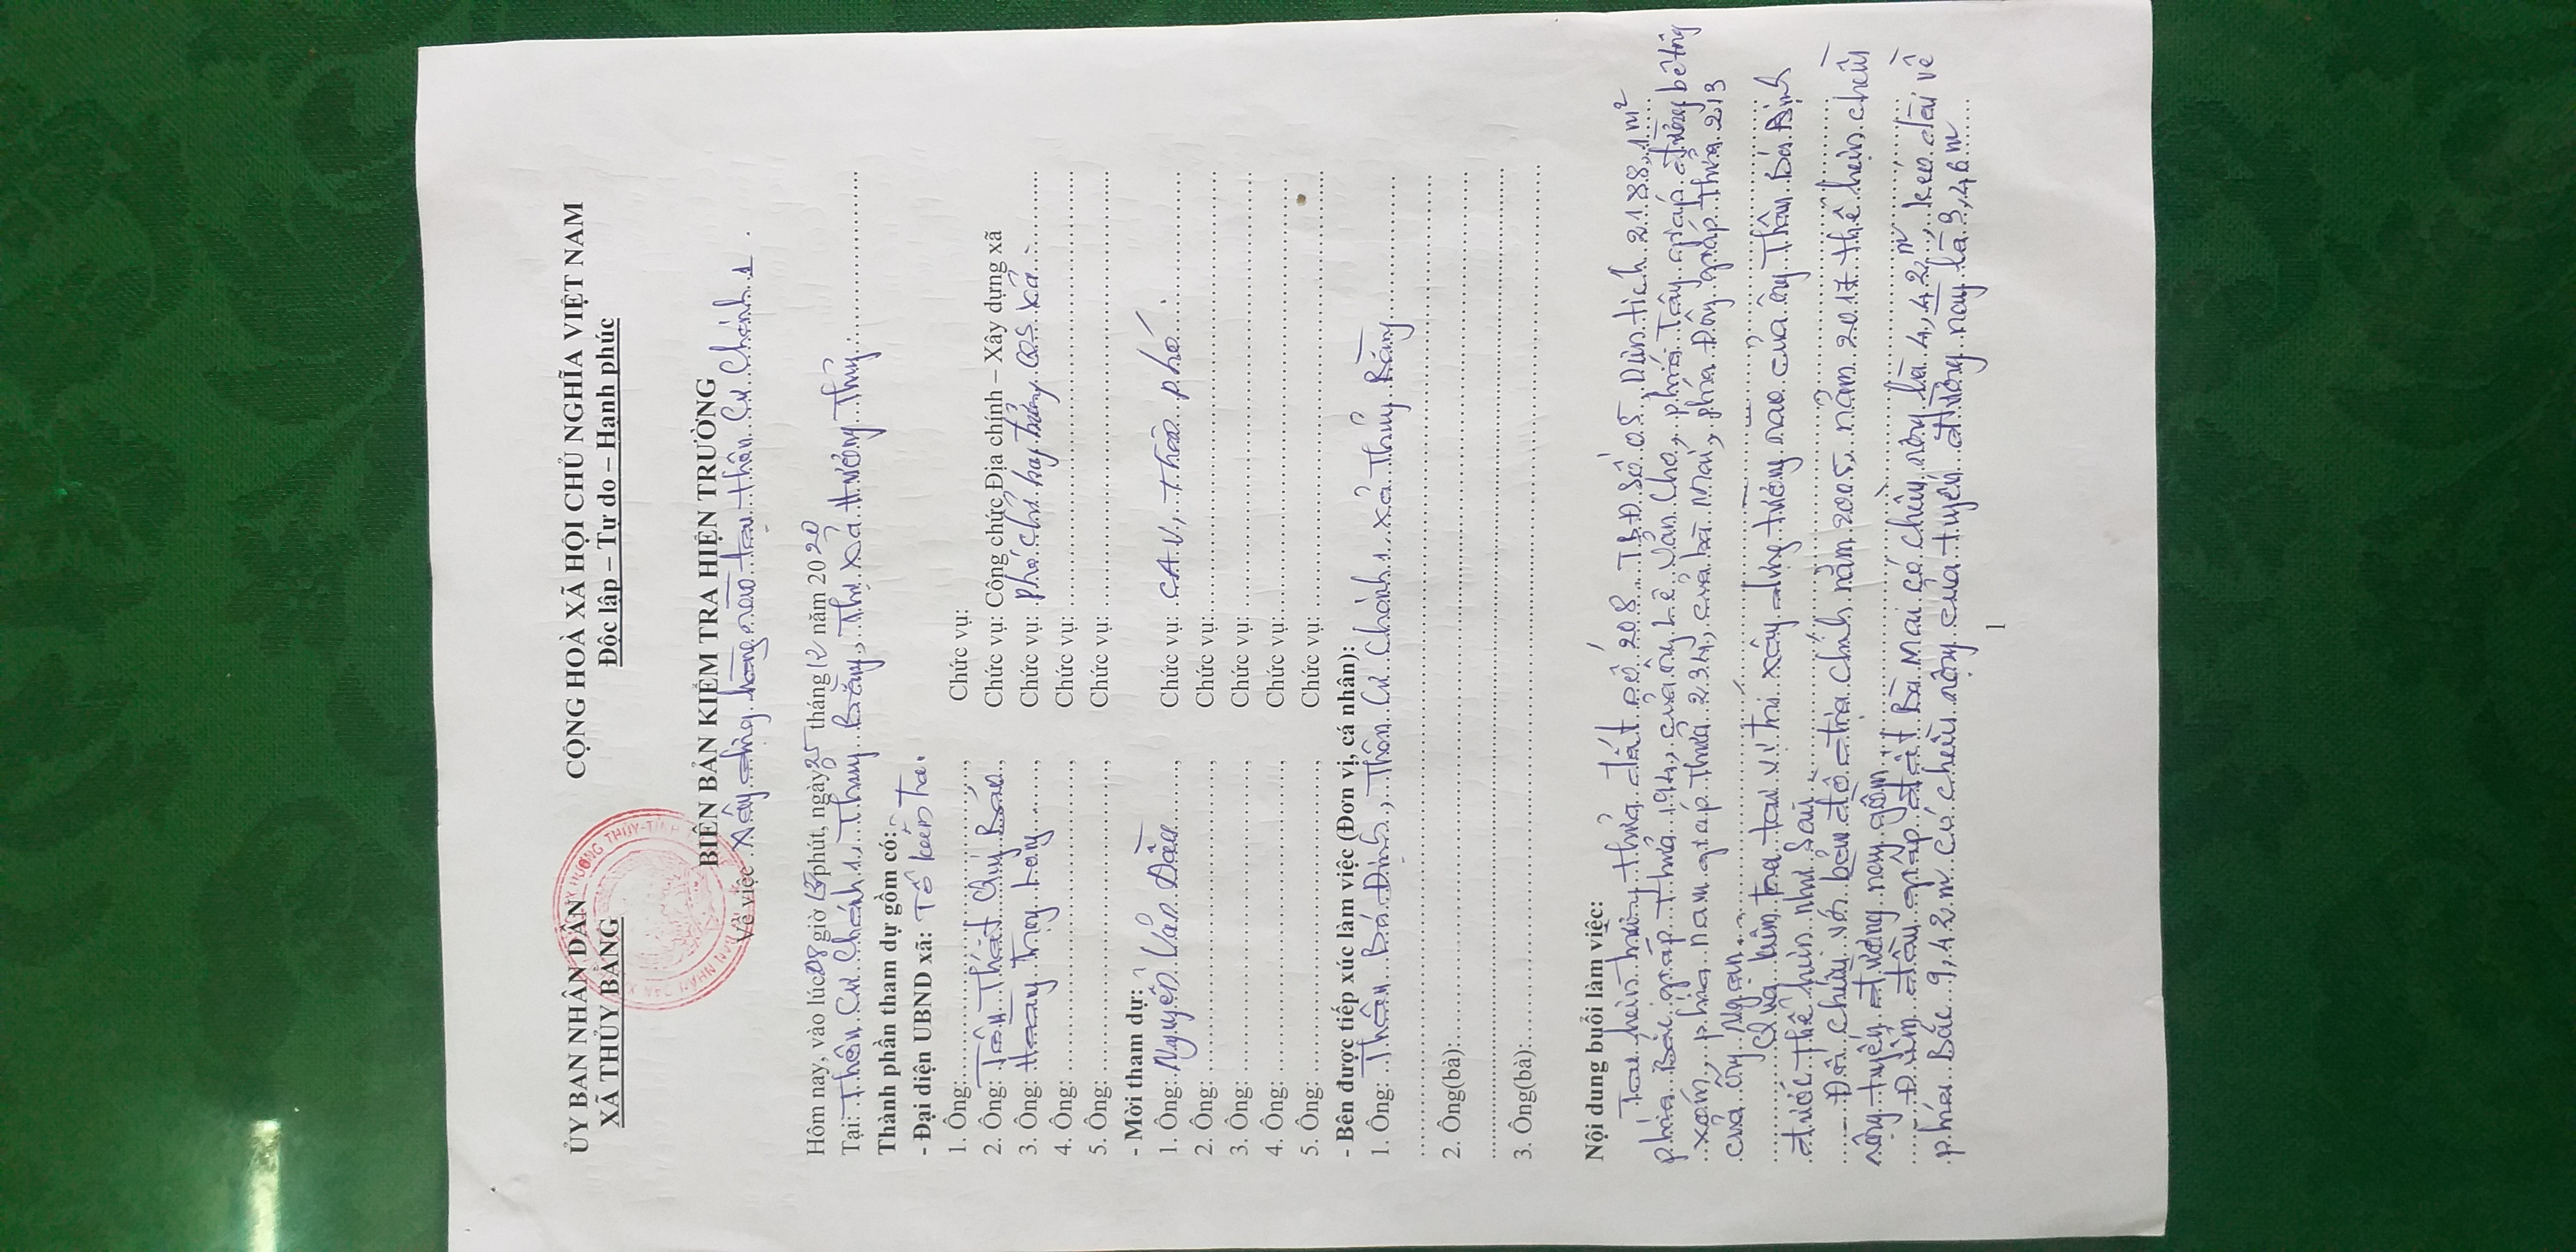 ỦY BAN NHÂN DÂN
XÃ THỦY BẰNG
CỘNG HOÀ XÃ HỘI CHỦ NGHĨA VIỆT NAM
Độc lập – Tự do – Hạnh phúc
BIÊN BẢN KIỂM TRA HIỆN TRƯỜNG
Về việc xây dựng hàng rào tại thôn Cư Chánh 1.
Hôm nay, vào lúc 08 giờ phút, ngày 25 tháng 12 năm 2020
Tại: Thôn Cư Chánh 1, Thủy Bằng, Thị xã Hương Thủy
Thành phần tham dự gồm có:
- Đại diện UBND xã: Tổ kiểm tra.
1. Ông: Chức vụ:
2. Ông: Tôn Thất Quý Chức vụ: Công chức Địa chính – Xây dựng xã
3. Ông Hoàng Trọng Chức vụ: phó chỉ huy trưởng xã
4. Ông: Chức vụ:
5. Ông: Chức vụ:
- Mời tham dự:
1. Ông: Nguyễn Văn Dần Chức vụ: CAV, Thôn phó
2. Ông: Chức vụ:
3. Ông: Chức vụ:
4. Ông: Chức vụ:
5. Ông: Chức vụ:
- Bên được tiếp xúc làm việc (Đơn vị, cá nhân):
1. Ông: Thân Bá Định, Thôn Cư Chánh 1, xã Thủy Bằng
2. Ông(bà):
3. Ông(bà):
Nội dung buổi làm việc:
Tại hiện trường thửa đất số 208 TBĐ số 05, Diện tích 2188,1 m²
phía Bắc giáp Thửa 194, của ông Lê Văn Cho, phía Tây giáp đường bê tông
xóm, phía nam giáp thửa 234, của bà Mai, phía Đông giáp Thửa 213
của ông Ngan.
Qua kiểm tra tại vị trí xây dựng tường rào của ông Thân Bá Định
được thể hiện như sau:
- Đối chiếu với bản đồ địa chính năm 2005, năm 2017 thể hiện chiều
rộng tuyến đường nay gồm:
- Điểm đầu giáp đất Bà Mai có chiều rộng là 4,42 m, kéo dài về
phía Bắc 9,42 m có chiều rộng của tuyến đường nay là 3,46 m
1